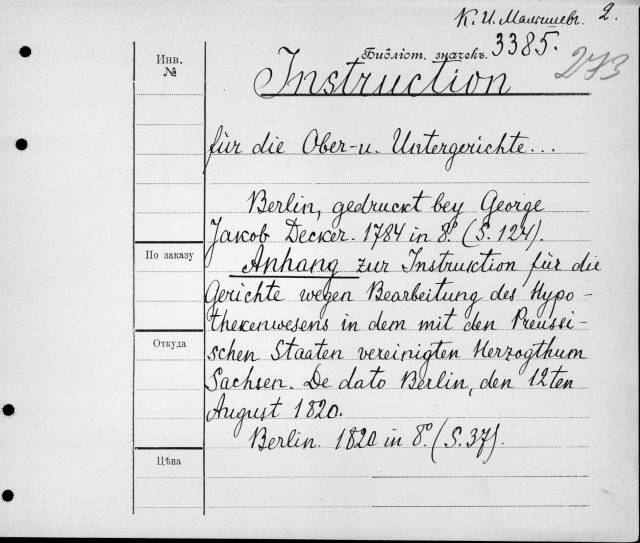 К. И. Малышевъ. 2.
Библіот. значекъ. 3385.
273
Инв.
№
Instruction
für die Ober-u. Untergerichte...
Berlin, gedruckt bey George
Jakob Decker. 1784 in 8º. (S. 124).
По заказу
Anhang zur Instruktion für die
Gerichte wegen Bearbeitung des Hypo-
thekenwesens in dem mit den Preussi-
Откуда
schen Staaten vereinigten Herzogthum
Sachsen. De dato Berlin, den 12ten
August 1820.
Berlin. 1820 in 8º. (S. 37).
Цѣна